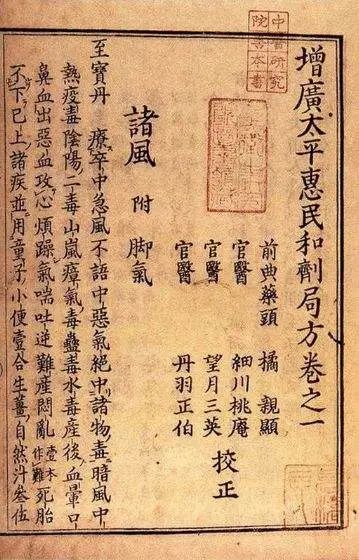 增廣太平惠民和劑局方卷之一
前典藥頭 橘 親顯
官醫 細川桃庵
官醫 望月三英
官醫 丹羽正伯
校正
諸風 附脚氣
至寶丹 療卒中急風不語中惡氣絶中諸物毒暗風中
熱疫毒陰陽二毒山嵐瘴氣毒蠱毒水毒產後血暈口
鼻血出惡血攻心煩躁氣喘吐逆難產悶亂壹本作難死胎
不下已上諸疾並用童子小便壹合生薑自然汁叁伍
中醫研究
院善本書